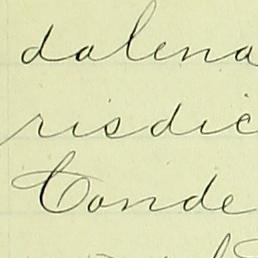 dalena
risdic
Conde